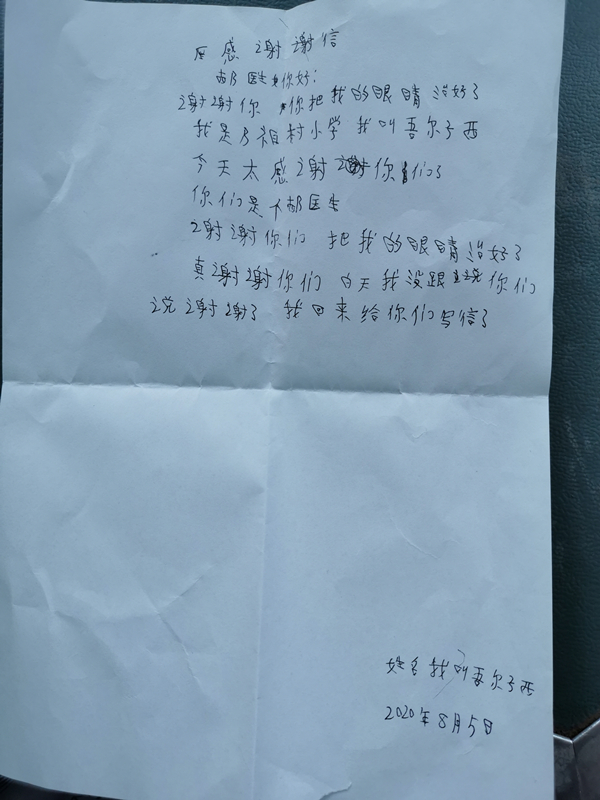 感谢谢信
郝医生你好:
谢谢你 你把我的眼睛治好了
我是乃祖村小学 我叫吾尔子西
今天太感谢 你们了
你们是 郝医生
谢谢你们 把我的眼睛治好了
真谢谢你们 白天我没跟 你们
说谢谢了 我回来给你们写信了
姓名我叫吾尔子西
2020年8月5日